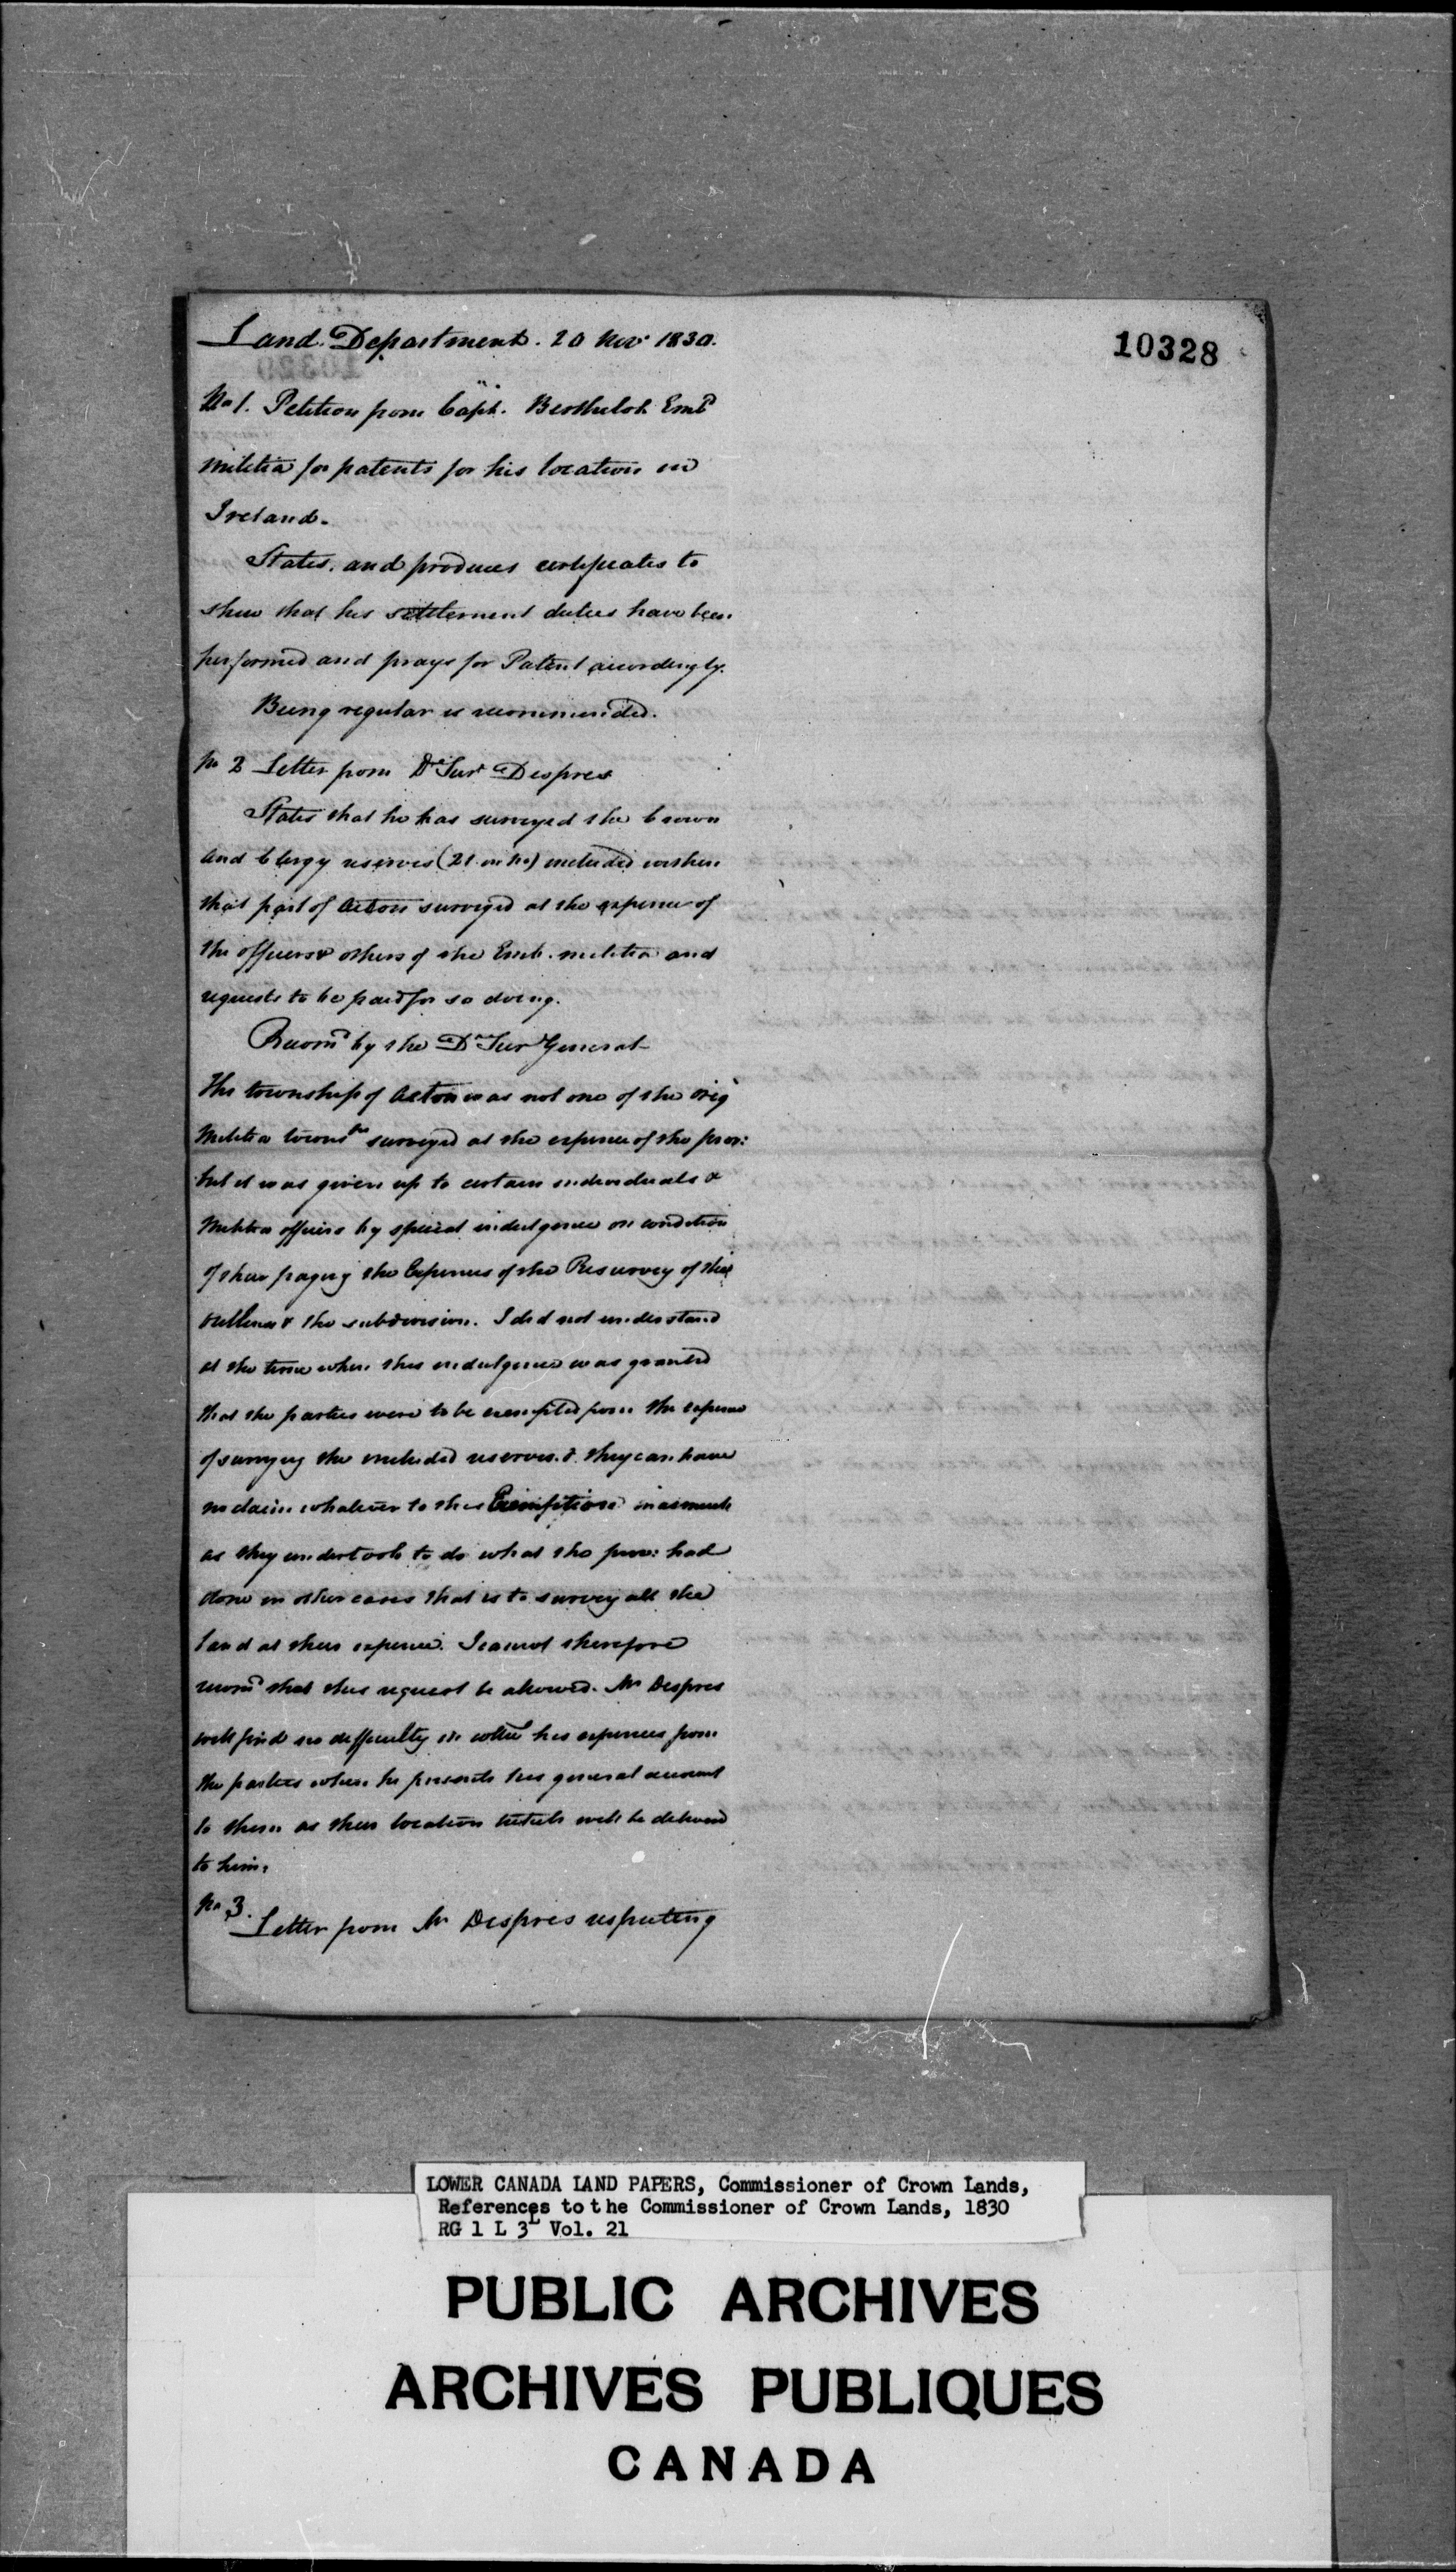 10328
Land Department. 20 Nov. 1830.
No 1. Petition from Capt. Berthelot Emb
militia for patents for his location in
Ireland.
States, and produces certificates to
shew that his settlement duties have been
performed and prays for Patent accordingly.
Being regular is recommended.
No 2 Letter from Dy Surr Despres
States that he has surveyed the Crown
and Clergy reserves (21 in no) included within
that part of Acton surveyed at the expence of
the officers & others of the Emb. militia and
requests to be paid for so doing.
Recomd by the Dy Sur General
The township of Acton was not one of the orig
Militia towns surveyed at the expence of the prov:
but it was given up to certain individuals &
Militia officers by special indulgence on condition
of their paying the Expences of the Resurvey of the
outlines & the subdivision. I did not understand
at the time when this indulgence was granted
that the parties were to be exempted from the expence
of surveying the included reserves. & they can have
no claim whatever to this Exemption inasmuch
as they undertook to do what the prov: had
done in other cases that is to survey all the
land at their expence. I cannot therefore
recomd that this request be allowed. Mr Despres
will find no difficulty in his expences from
the parties when he presents his general account
to them as their location tickets will be delivered
to him.
No 3.
Letter from Mr Despres respecting
LOWER CANADA LAND PAPERS, Commissioner of Crown Lands,
References to the Commissioner of Crown Lands, 1830
RG 1 L 3L Vol. 21
PUBLIC ARCHIVES
ARCHIVES PUBLIQUES
CANADA